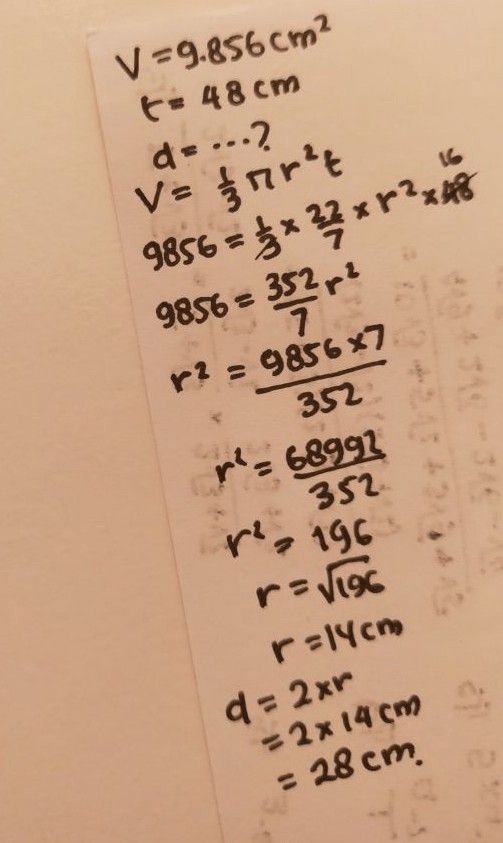 V = 9.856 cm²
t = 48 cm
d = ...?
V = 1/3 π r² t
9856 = 1/3 × 22/7 × r² × 48 16
9856 = 352/7 r²
r² = 9856 × 7 / 352
r² = 68992 / 352
r² = 196
r = √196
r = 14 cm
d = 2 × r
= 2 × 14 cm
= 28 cm.